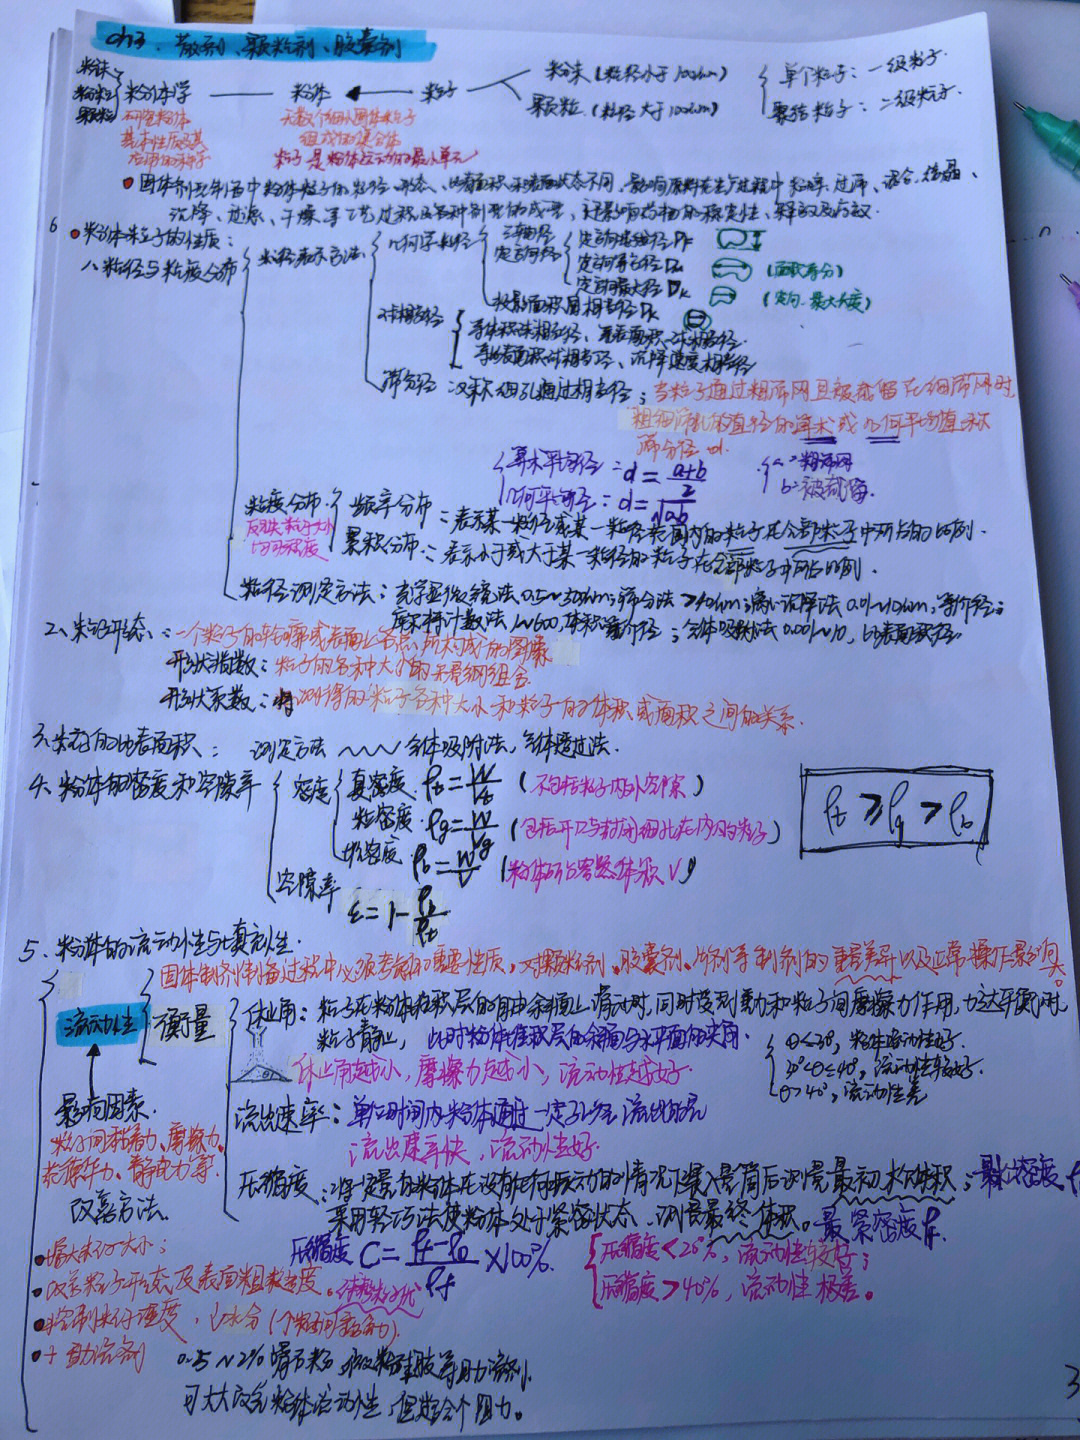 ch3. 散剂、颗粒剂、胶囊剂
粉末 粉体学 —— 粉体 ← 粒子 粉末(粒径小于100um) 单个粒子：一级粒子
颗粒 颗粒(粒径大于100um) 聚结粒子：二级粒子
研究粉体 无数个细小固体粒子
基本性质及其 组成的集合体
应用的科学 粒子是粉体运动的最小单元
固体剂型制备中粉体粒子的粒径、形态、比表面积和表面状态不同，影响原料在生产过程中粉碎、过筛、混合、结晶、
沉降、过滤、干燥等工艺过程及各种剂型的成型，还影响药物的稳定性、释放及疗效.
6
粉体粒子的性质：
1、粒径与粒度分布 粒径表示方法 几何学粒径 三轴径
定向径 定向接线径
定向等分径 (面积等分)
定向最大径 (定向、最大长度)
投影面积圆相当径
球相当径 等体积球相当径、等表面积球相当径
等比表面积球相当径、沉降速度相当径
筛分径：又称细孔通过相当径；当粒子通过粗筛网且被截留在细筛网时,
粗细筛孔的直径的算术或几何平均值称
筛分径 d.
算术平均径：d = (a+b)/2 a：粗筛网
几何平均径：d = √ab b：被截留.
粒度分布 频率分布：表示某一粒径或某一粒径范围内的粒子在全部粒子中所占的比例.
反映粒子大小
均匀程度 累积分布：表示小于或大于某一粒径的粒子在全部粒子中所占比例.
粒径测定方法：光学显微镜法 0.5~500um；筛分法 >40um；离心沉降法 0.01~10um，等价径；
库尔特计数法 1~600，体积等价径；气体吸附法 0.001~10，比表面积径
2、粒子形态：一个粒子的轮廓或表面上各点所构成的图像
形状指数：粒子的各种大小的无量纲组合.
形状系数：将测得的粒子各种大小和粒子的体积或面积之间的关系.
3、粒子的比表面积： 测定方法 气体吸附法，气体透过法.
4、粉体的密度和空隙率 密度 真密度 ρt = W/Vt (不包括粒子内外空隙)
粒密度 ρg = W/Vg (包括开口与封闭细孔在内的粒子)
堆密度 ρb = W/V (粉体所占容器体积V)
ρt ≥ ρg > ρb
空隙率 ε = 1 - ρb/ρt
5、粉体的流动性与填充性.
固体制剂制备过程中必须考虑的重要性质。对颗粒剂、胶囊剂、片剂等制剂的重量差异以及正常操作影响大。
流动性 衡量 休止角：粒子在粉体堆积层的自由斜面上滑动时，同时受到重力和粒子间摩擦力作用，力达平衡时，
粒子静止，此时粉体堆积层的斜面与水平面的夹角. θ<30°，粉体流动性好.
休止角越小，摩擦力越小，流动性越好. 30°<θ≤40°，流动性较好.
θ>40°，流动性差
流出速率：单位时间内粉体通过一定孔径流出的量
流出速率快，流动性好.
影响因素
粒子间黏着力、摩擦力、
范德华力、静电力等
压缩度：将一定量的粉体在没有任何振动的情况下装入量筒后测量最初体积；最松密度
采用轻巧法使粉体处于紧密状态，测量最终体积。最紧密度ρf.
压缩度 C = (ρf - ρ0)/ρf ×100%. 压缩度<20%，流动性较好；
压缩度>40%，流动性极差。
改善方法.
增大粒子大小；
改善粒子形态及表面粗糙度。
控制粒子湿度，
+ 助流剂 0.5~2% 滑石粉、微粉硅胶等助流剂.
可大大改善粉体流动性，
3